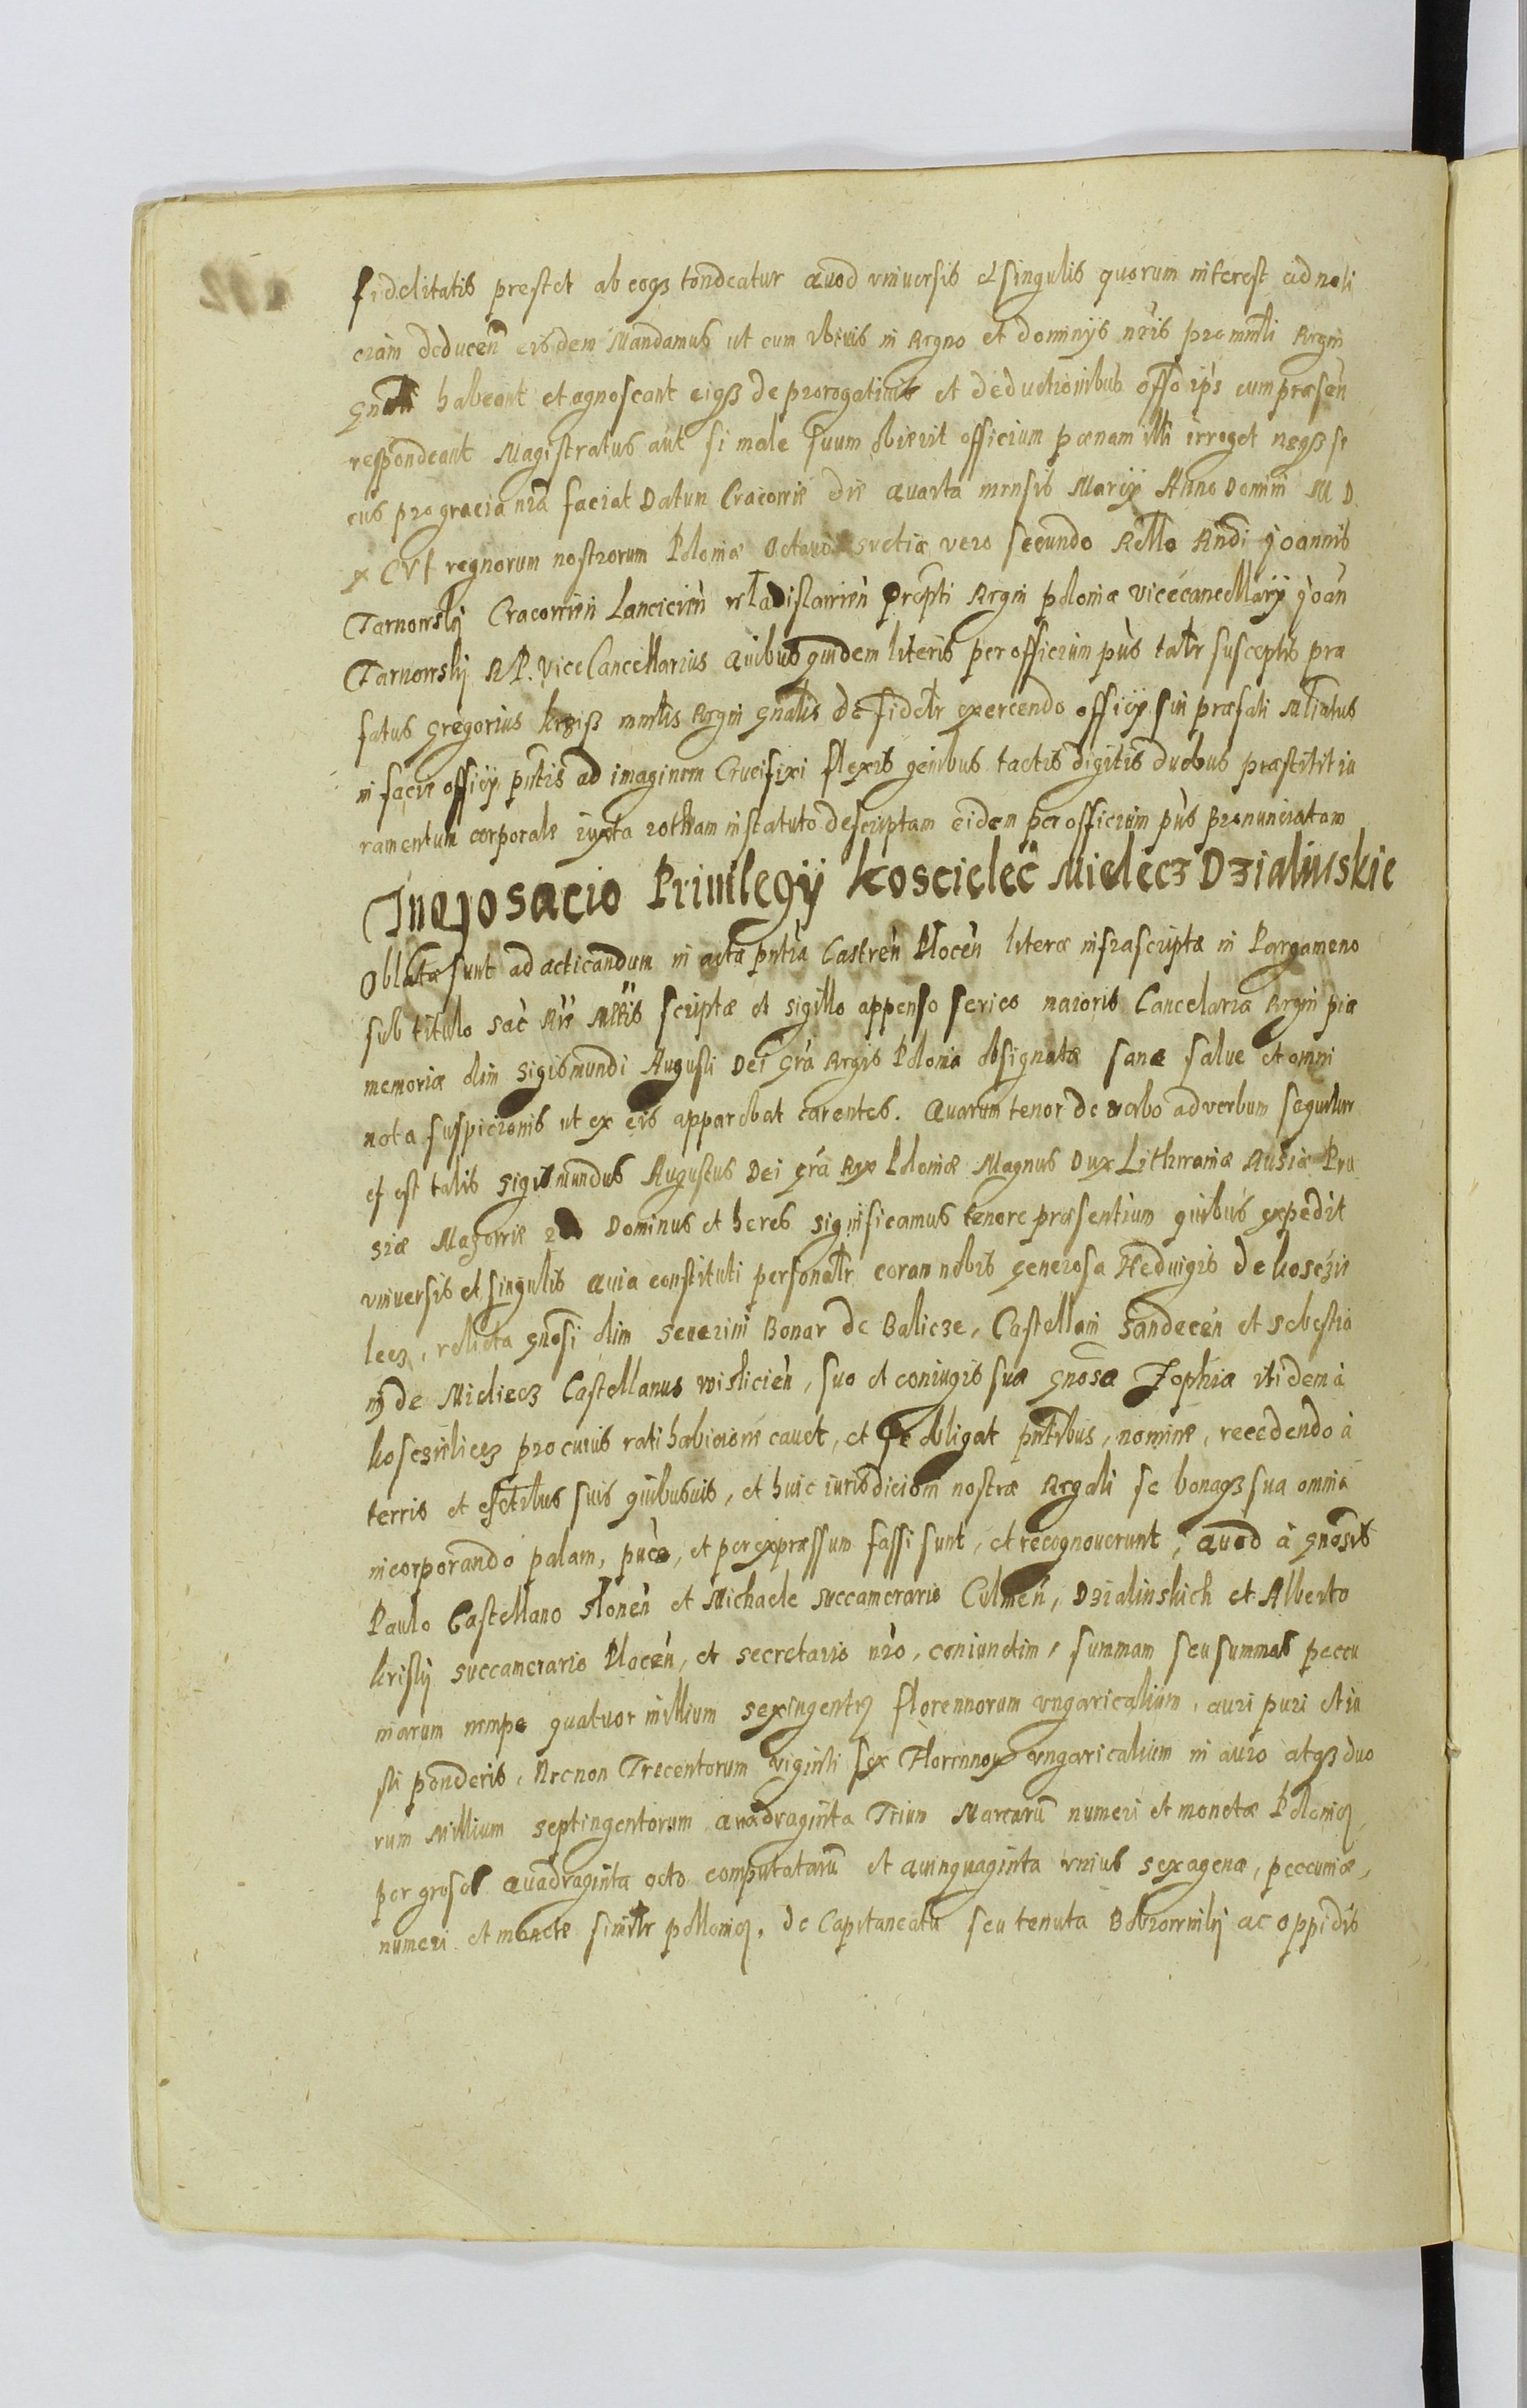 fidelitatis prestet ab eoqз tondeatur Quod vniuersis et singulis quorum interest ad noti
ciam deducen̄ eisdem Mandamus ut eum vbiuis in Regno et dominijs nr̄is pro mintli Regni
gnali habeant et agnoscant eiqз de prorogatiuis et deductionibus offo ips cum præsen
respondeant Magistratus aut si male suum obierit officium pœnam illi irroget neqз se
cus pro gracia nr̄a faciat Datum Cracoviæ die Quarta mensis Marcij Anno Domini M D
X CVI regnorum nostrorum Poloniæ Octauo suetiæ vero secundo Rello Rndi Joannis
Tarnowskij Cracovien̄ Lancicien̄ wladislavien̄ Præpti Regni poloniæ vicecancellarij Joan
Tarnowskij R P. ViceCancellarius Quibus quidem literis per officium pn̄s taltr susceptis præ
fatus Gregorius mintlis Regni gnalis de fideltr exercendo officij sui præfati Mliatus
in facie officij pntis ad imaginem Crucifixi flexis genibus tactis digitis duobus præstitit iu
ramentum corporale iuxta rotham in statuto descriptam eidem per officium pn̄s Pronunciatam
Ingrosacio Priuilegij Koscielec Mielecз Dзialinskie
Oblatæ sunt ad acticandum in acta pntia Castren̄ Plocen̄ literæ infrascriptæ in Pargameno
sub titulo sac̄ Ræ Mttis scriptæ et sigillo appenso serico maioris Cancelaria Regni piæ
memoriæ olim Sigismundi Augusti Dei Gra̅ Regis Poloniæ obsignatæ sanæ salue et omni
nota suspicionis ut ex eis apparebat carentes. Quarum tenor de verbo ad verbum sequitur
et est talis Sigismundus Augustus Dei Gra̅ Rex Poloniæ Magnus Dux Lithvaniæ Rusiæ Pru
siæ Mazoviæ Dominus et heres significamus tenore præsentium quibus expedit
vniuersis et singulis Quia constituti personaltr coram nobis generosa Heduigis de Kosczie
lecз, relicta gnosi olim Seuerini Bonar de Balicze, Castellani Sandecen̄ et Sebestia
nз de Mielecз Castellanus wislicien̄, suo et coniugis suæ gnosæ Zophiæ itidem à
Kosczielecз pro cuius rati habicione cauet, et se obligat pntibus, nomine, recedendo à
terris et distctibus suis quibusuis, et huic iurisdiciom nostræ Regali se bonaqз sua omnia
incorporando palam, puc̄e, et per expræssum fassi sunt, et recognouerunt, Quod à gnosis
Paulo Castellano Slonen̄ et Michaele Succamerario Culmen̄, Dзialinskich et Alberto
Kriskij succamerario Plocen̄, et secretario nr̄o, coniunctim, summam seu summas peccu
niarum nempe quatuor millium sexingentз florennorum vngaricalium, auri puri et iu
sti ponderis, Necnon Trecentorum viginti sex Florennoз vngaricalium in auro atqз duo
rum Millium septingentorum Quadraginta Trium Marcaru̅ numeri et monetæ Poloniз,
per grosos Quadraginta octo computataru̅ et Quinquaginta vnius sexagenæ, peccuniæ,
numeri et monete similtr polloniз, de Capitaneatu seu tenuta Bobrownikij ac oppidis